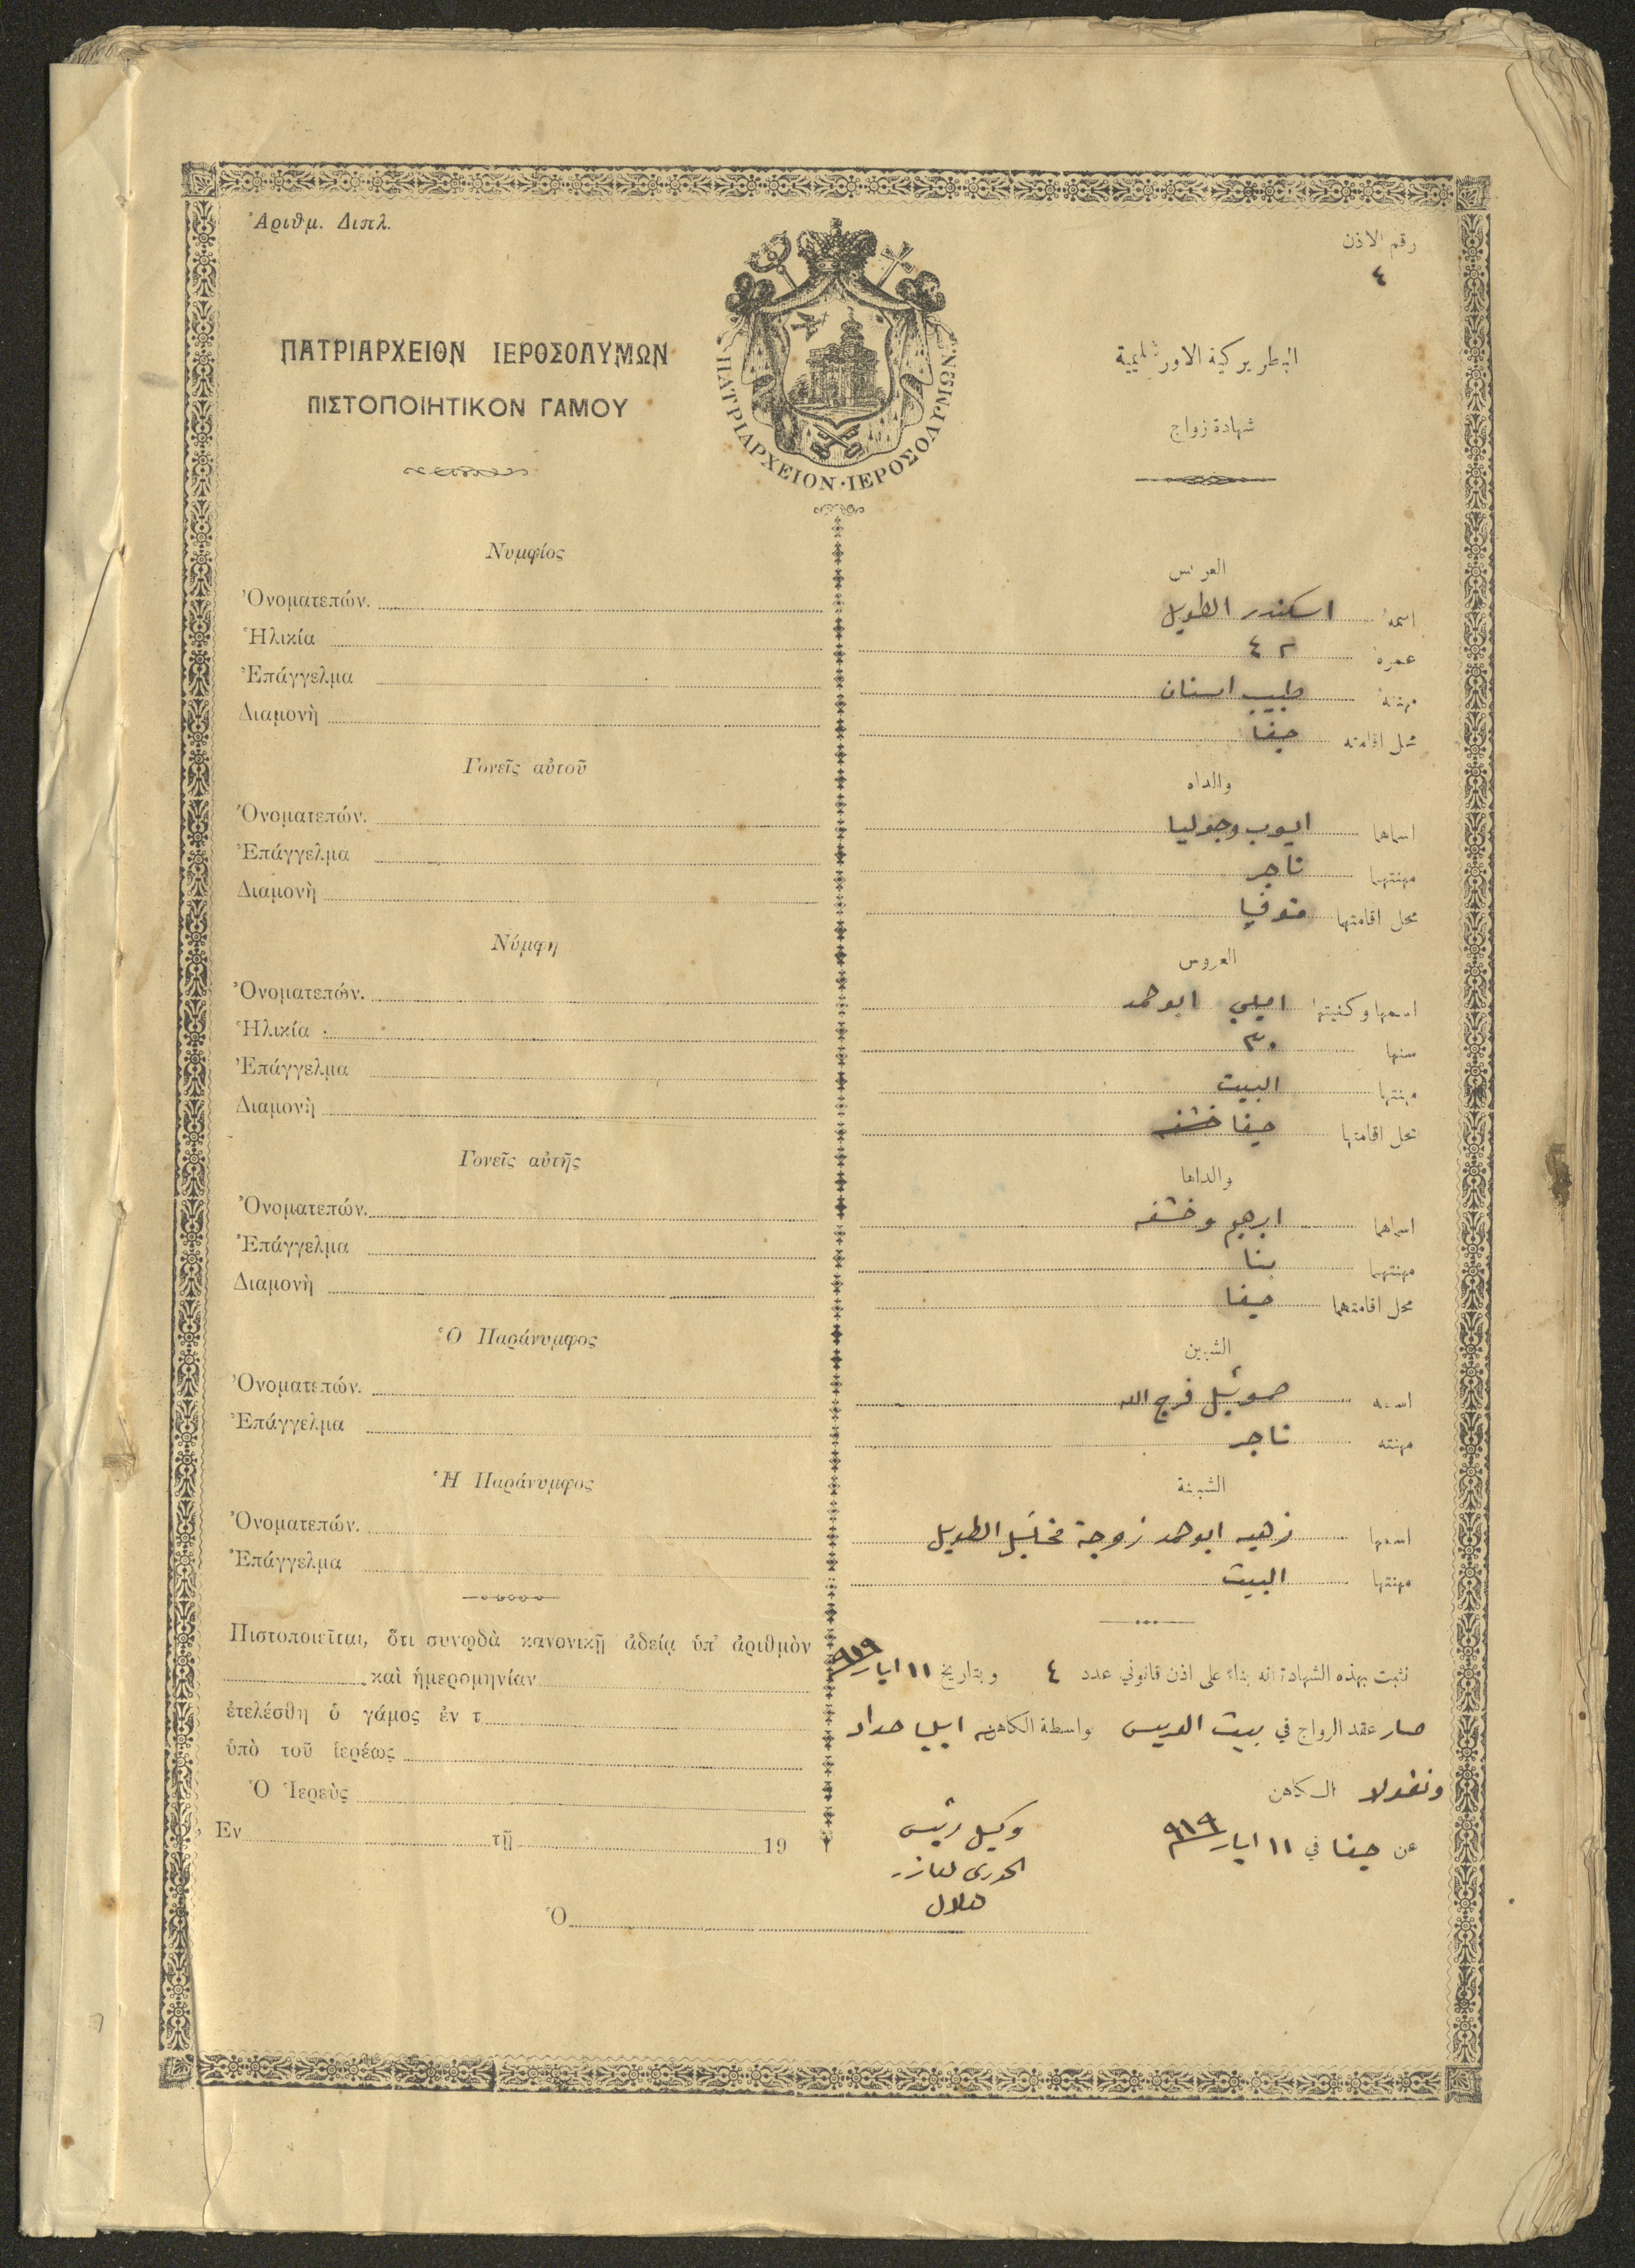 Ἀριθμ. Διπλ.
رقم الاذن
٤
ΠΑΤΡΙΑΡΧΕΙΟΝ ΙΕΡΟΣΟΛΥΜΩΝ
ΠΙΣΤΟΠΟΙΗΤΙΚΟΝ ΓΑΜΟΥ
ΠΑΤΡΙΑΡΧΕΙΟΝ · ΙΕΡΟΣΟΛΥΜΩΝ
البطريركية الاورشليمية
شهادة زواج
Νυμφίος
Ὀνοματεπών.
Ἡλικία
Ἐπάγγελμα
Διαμονὴ
Γονεῖς αὐτοῦ
Ὀνοματεπών.
Ἐπάγγελμα
Διαμονὴ
Νύμφη
Ὀνοματεπών.
Ἡλικία
Ἐπάγγελμα
Διαμονὴ
Γονεῖς αὐτῆς
Ὀνοματεπών.
Ἐπάγγελμα
Διαμονὴ
Ὁ Παράνυμφος
Ὀνοματεπών.
Ἐπάγγελμα
Ἡ Παράνυμφος
Ὀνοματεπών.
Ἐπάγγελμα
Πιστοποιεῖται, ὅτι συνῳδὰ κανονικῇ ἀδείᾳ ὑπ' ἀριθμὸν
καὶ ἡμερομηνίαν
ἐτελέσθη ὁ γάμος ἐν τ
ὑπὸ τοῦ ἱερέως
Ὁ Ἱερεὺς
Ἐν τῇ 19
Ὁ
العريس
اسمه اسكندر الطويل
عمره ٤٢
مهنته طبيب اسنان
محل اقامته حيفا
والداه
اسماهما ايوب وجوليا
مهنتهما تاجر
محل اقامتهما متوفيا
العروس
اسمها وكنيتها اميلي ابو حمد
سنها ٣٠
مهنتها البيت
محل اقامتها حيفا
والداها
اسماهما ابرهيم وخشفه
مهنتهما بنا
محل اقامتهما حيفا
الشبين
اسمه صموئيل فرج الله
مهنته تاجر
الشبينة
اسمها زهيه ابو حمد زوجة مخائيل الطويل
مهنتها البيت
نثبت بهذه الشهادة انه بناءً على اذن قانوني عدد ٤ وبتاريخ ١١ ايار ٩١٩
صار عقد الزواج في بيت العريس بواسطة الكاهن ايليا حداد
ونقولا الكاهن
عن حيفا في ١١ ايار ٩١٩
وكيل رئيس
الخوري لعازر
هلال